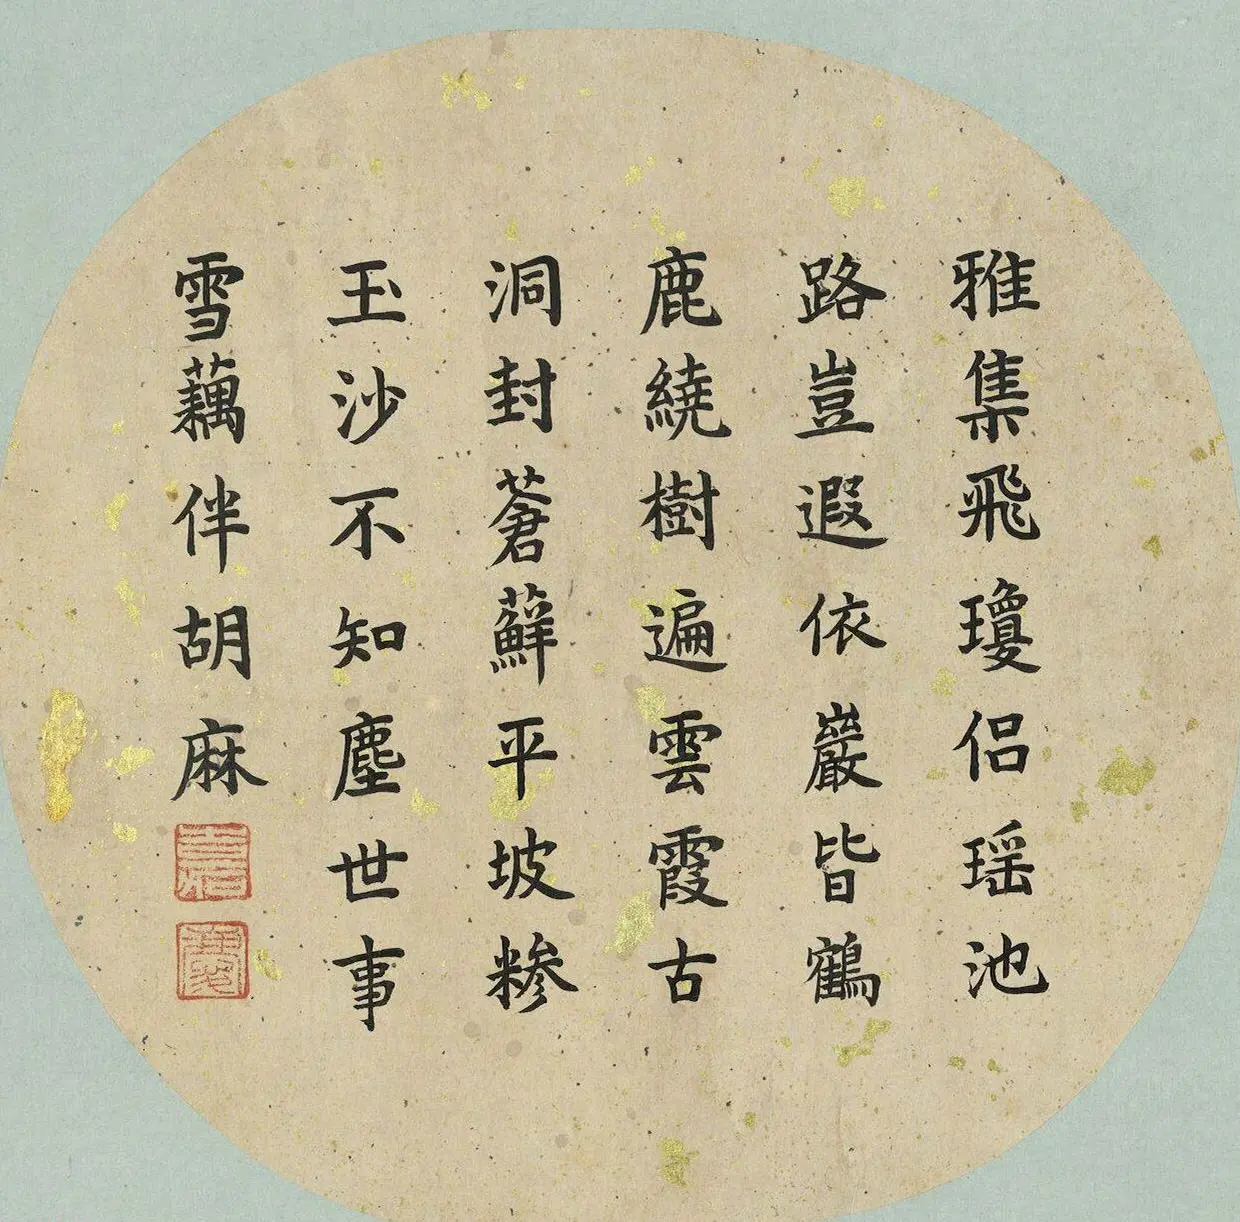 雅集飛瓊侣瑶池
路豈遐依巖皆鶴
鹿繞樹遍雲霞古
洞封蒼蘚平坡糝
玉沙不知塵世事
雪藕伴胡麻